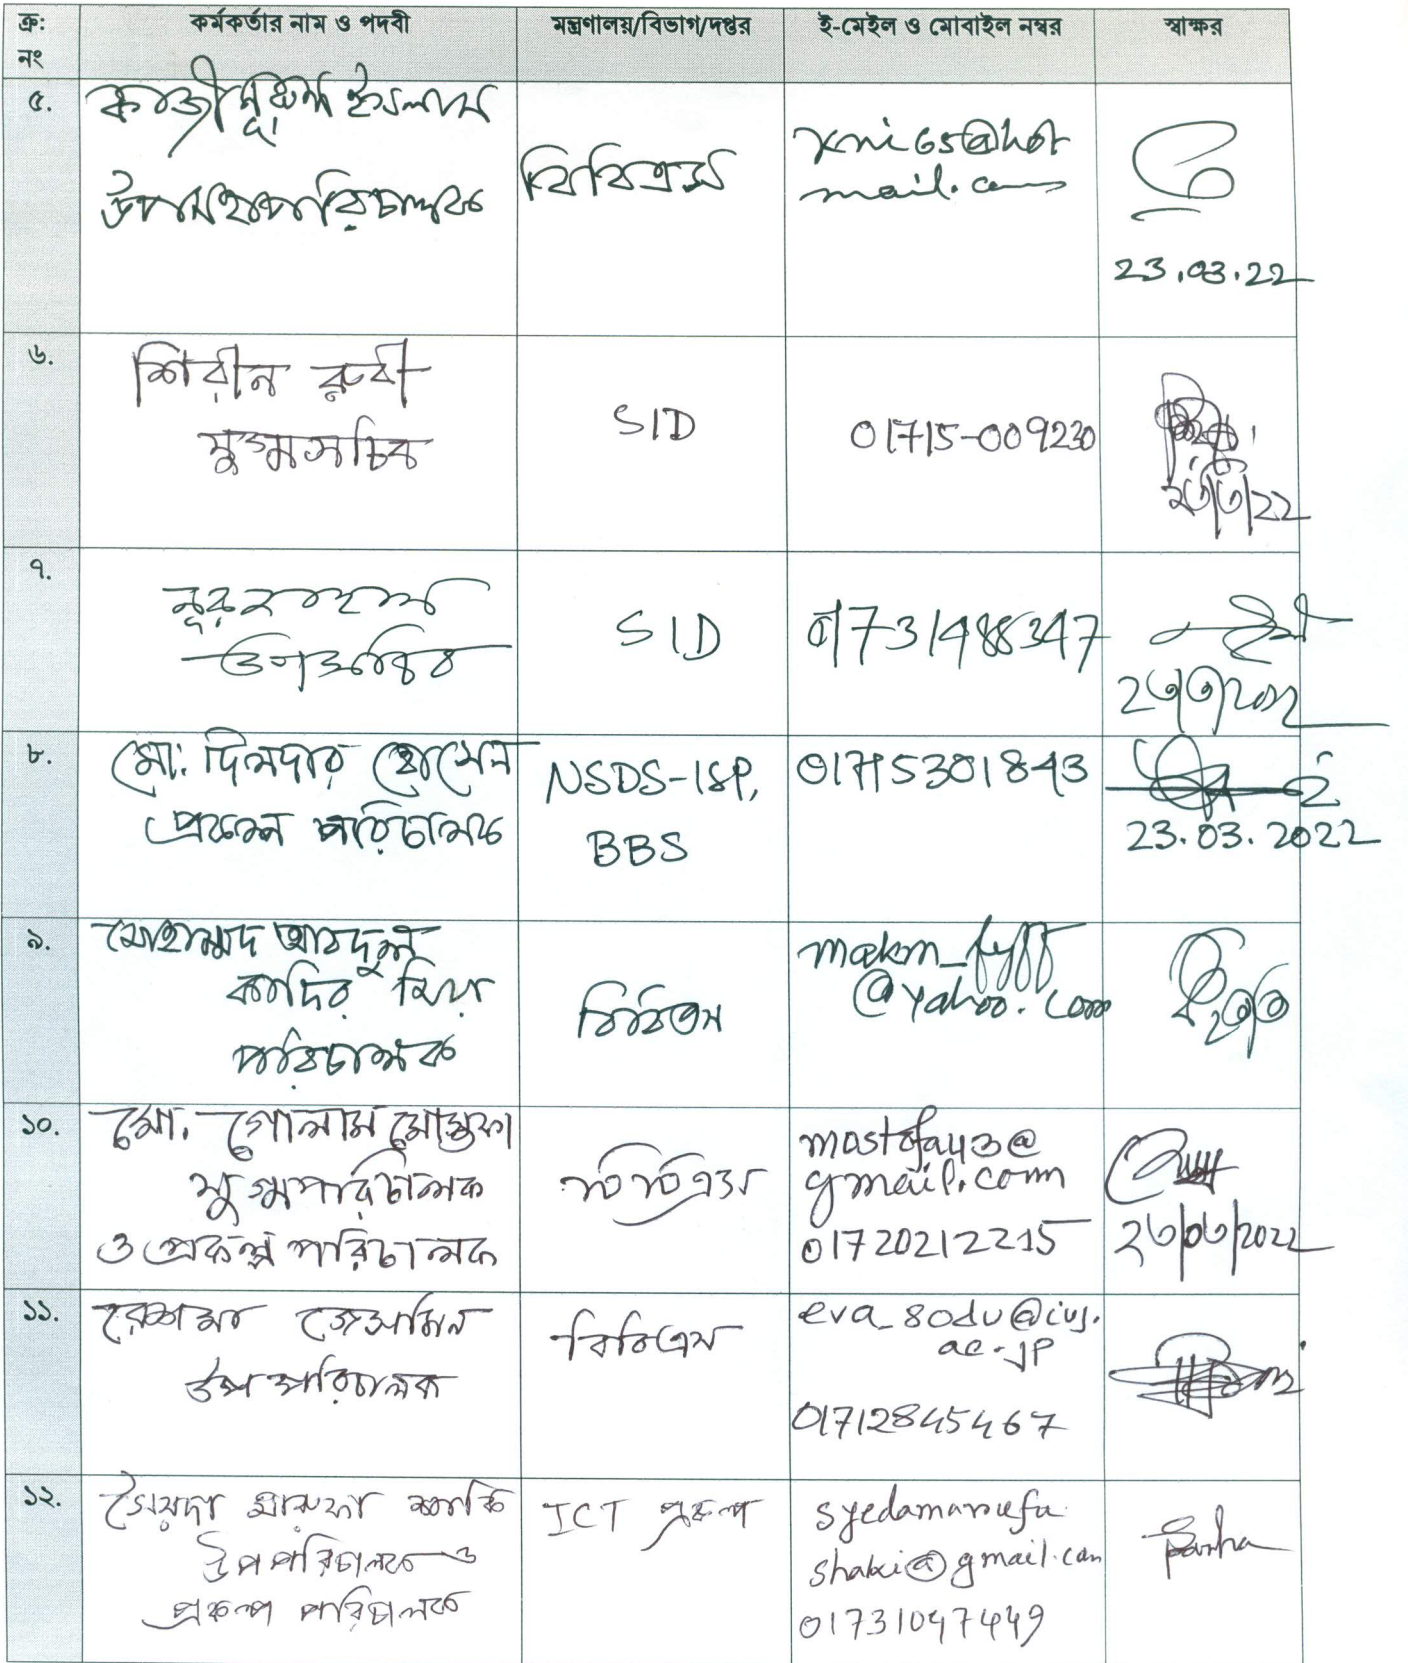 ক্র: নং	কর্মকর্তার নাম ও পদবী	মন্ত্রণালয়/বিভাগ/দপ্তর	ই-মেইল ও মোবাইল নম্বর	স্বাক্ষর
৫.
কাজী নূরুল ইসলাম
উপমহাপরিচালক
বিবিএস
kni65@hot
mail.com
23.03.22
৬.
শিরীন রুবী
যুগ্মসচিব
SID
01715-009230
২৩/৩/22
৭.
উপসচিব
SID
01731488347
২৩/৩/২০২২
৮.
মো: দিলদার হোসেন
প্রকল্প পরিচালক
NSDS-ISP,
BBS
01715301843
23.03.2022
৯.
মোহাম্মদ আবদুল
কাদির মিয়া
পরিচালক
বিবিএস
makm_
@yahoo.com
১০.
মো. গোলাম মোস্তফা
যুগ্মপরিচালক
ও প্রকল্প পরিচালক
বিবিএস
mostofay3@
gmail.com
01720212215
২৩/০৩/২০২২
১১.
রেশমা জেসমিন
উপপরিচালক
বিবিএস
eva_80du@iuj.
ac.jp
01712845467
১২.
সৈয়দা মারুফা শাকি
উপপরিচালক ও
প্রকল্প পরিচালক
ICT প্রকল্প
syedamarufa
shaki@gmail.com
01731047449